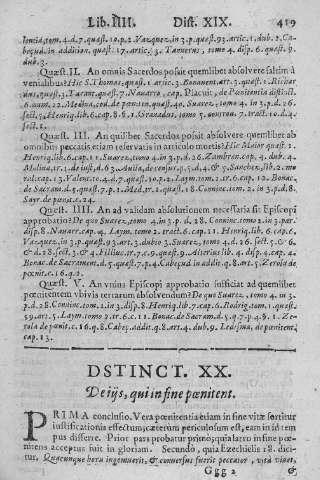 Lib. IIII. Dist. XIX. 419
tentia, tom. 4. d. 7. quæst. 10. p. 2. Vazquez, in 3. p. quæst. 93. artic. 1. dub. 2. Ca-
beçud. in addition. quæst. 17. artic. 3. Tannerus, tomo 4. disp. 6. quæst. 9.
dub. 3.
Quæst. II. An omnis Sacerdos possit quemlibet absolvere saltim à
venialibus? Hic S. Thomas, quæst. 1. artic. 3. Bonavent. art. 3. quæst. 1. Richar
dus, quæst. 3. Tarant. quæst. 7. Navarro, cap. Placuit, de Pœnitentia distict.
6. num. 22. Medina, cod. de pœniten. quæst. 40. Suarez, tomo 4. in 3. p. d. 26.
sect. 5. Henriq. lib. 6. cap. 8. §. 1. Granados, tomo 5. controu. 7. tract. 10. d. 4.
sect. 1.
Quæst. III. An quilibet Sacerdos possit absolvere quemlibet ab
omnibus peccatis etiam reservatis in articulo mortis? Hic Maior quæst. 1.
Henriq. lib. 6. cap. 11. Suarez, tomo 4. in 3. p. d. 26. Zambran. cap. 4. dub. 4.
Molina, tr. 1. de iust.
Valent. tom. 4. d. 7. quæst. 10. p. 2. Laym. tom. 2. tr. 6. cap. 12. Bonac.
de Sacram. d. 5. quæst. 7. p. 1. Med. tr. 2. quæst. 18. Coninc. tom. 2. in 3. p. d. 8.
Sayr. de pœnit. c. 24.
Quæst. IIII. An ad validam absolutionem necessaria sit Episcopi
approbatio? De quo Suarez, tomo 4. in 3. p. d. 28. Coninc. tomo 2. in 3. par.
disp. 8. Navarr. cap. 4. Laym. tomo 2. tract. 6. cap. 11. Henriq. lib. 6. cap. 6,
Vazquez, in 3. p. quæst. 93. art. 3. dubio 3. Suarez, tom. 4. d. 26. sect. 5. & 6.
& d. 28. sect. 3. & 4. Filliuc. tr. 7. c. 9. quæst. 9. Alterius lib. 4. disp. 4. cap. 4.
Bonac. de Sacrament. d. 5. quæst. 7. p. 4. Cabeçud. in addit. q. 8. art. 5. Zerola de
pœnit. c. 16. q. 2.
Quæst. V. An unius Episcopi approbatio sufficiat ad quemlibet
pœnitentem ubivis terrarum absolvendum? De quo Suarez, tomo 4. in 3.
p. d. 28. Coninc. tom. 2. in 3. p. disp. 8. Henriq. lib. 7. cap. 6. Rodrig. tom. 1. quæst.
59. art. 5. Laym. tomo 2. tr. 6. c. 11. Bonac. de Sacram. d. 5. q. 7. p. 4. §. 1. Ze-
rola de pœnit. c. 16. q. 8. Cabeç. addit. q. 8. art. 4. dub. 9. Ledesma, de pœnitent.
cap. 13.
DSTINCT. XX.
De iis, qui in fine pœnitent.
PRIMA conclusio. Vera pœnitentia etiam in fine vitæ sortitur
iustificationis effectum; cæterum periculosum est, eam in id tem
pus differre. Prior pars probatur primò; quia latro in fine pœ-
nitens acceptus fuit in gloriam. Secundò, quia Ezechielis 18. dici-
tur, Quacunque hora ingemuerit, & conversus fuerit peccator, vita vivet,
Ggg 2 &